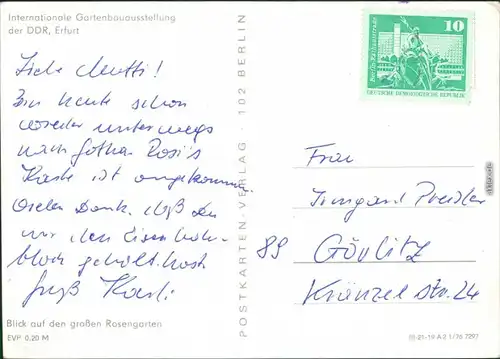 Internationale Gartenbauausstellung
der DDR, Erfurt
Liebe Mutti!
Bin heute schon
wieder unterwegs
nach Gotha. Rosi's
Karte ist angekommen
Vielen Dank. daß Du
mir den Eisenbahn-
block geholt hast
Gruß Karli
Blick auf den großen Rosengarten
EVP 0,20 M
POSTKARTEN-VERLAG · 102 BERLIN
10
Berlin, Rathausstrasse
DEUTSCHE DEMOKRATISCHE REPUBLIK
Frau
Irmgard
89 Görlitz
Kränzel str. 24
III-21-19 A 2 1/76 7297